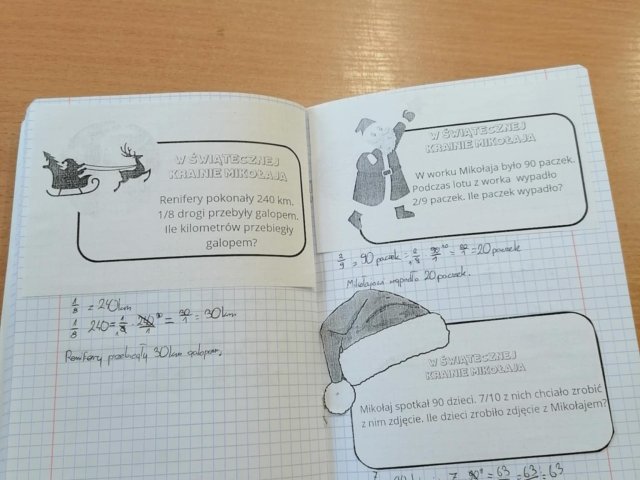 W ŚWIĄTECZNEJ
KRAINIE MIKOŁAJA
Renifery pokonały 240 km.
1/8 drogi przebyły galopem.
Ile kilometrów przebiegły
galopem?
1/8 z 240km
1/8 · 240 = 1/8 · 240/1 = 30/1 = 30km
Renifery przebiegły 30km galopem.
W ŚWIĄTECZNEJ
KRAINIE MIKOŁAJA
W worku Mikołaja było 90 paczek.
Podczas lotu z worka wypadło
2/9 paczek. Ile paczek wypadło?
2/9 z 90 paczek = 2/9 · 90/1 = 20/1 = 20 paczek
Mikołajowi wypadło 20 paczek.
W ŚWIĄTECZNEJ
KRAINIE MIKOŁAJA
Mikołaj spotkał 90 dzieci. 7/10 z nich chciało zrobić
z nim zdjęcie. Ile dzieci zrobiło zdjęcie z Mikołajem?